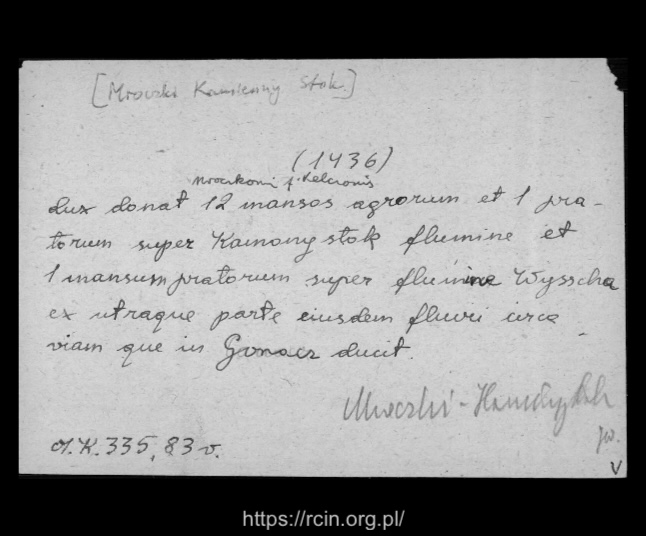 [Mroczki Kamienny Stok]
(1436)
Mroczkoni f. Falconis
dux donat 12 mansos agrorum et 1 pra-
torum super Kamony stok flumine et
1 mansum pratorum super flumine Wysscha
ex utraque parte eiusdem fluvii circa
viam que in ducit.
Mroczki -
M.K. 335, 83 v.
V
https://rcin.org.pl/